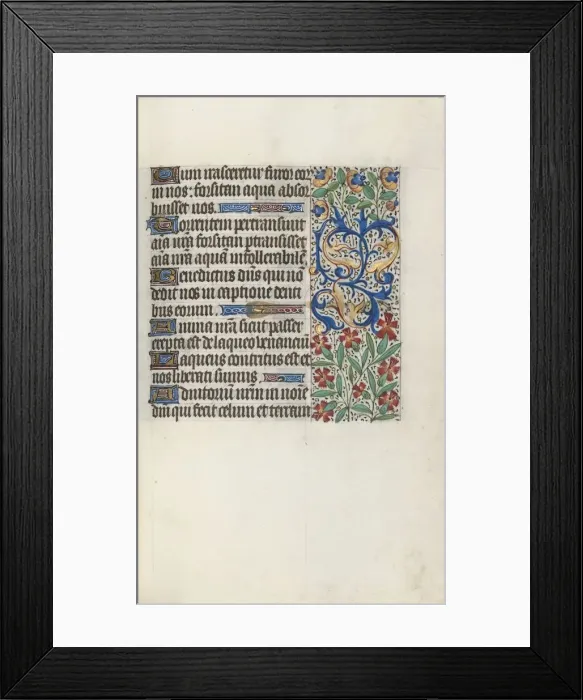 Cum irasceretur furor eor
in nos: forsitan aqua absor
buisset nos.
Torrentem pertransivit
aīa nr̄a forsitan ptransisset
aīa nr̄a aquā intollerabilē
Benedictus dn̄s qui nō
dedit nos in captione denti
bus eorum.
Anima nr̄a sicut passer
erepta est de laqueo venanciū
Laqueus contritus est et
nos liberati sumus.
Adiutoriū nr̄m in noīe
dn̄i qui fecit celum et terram